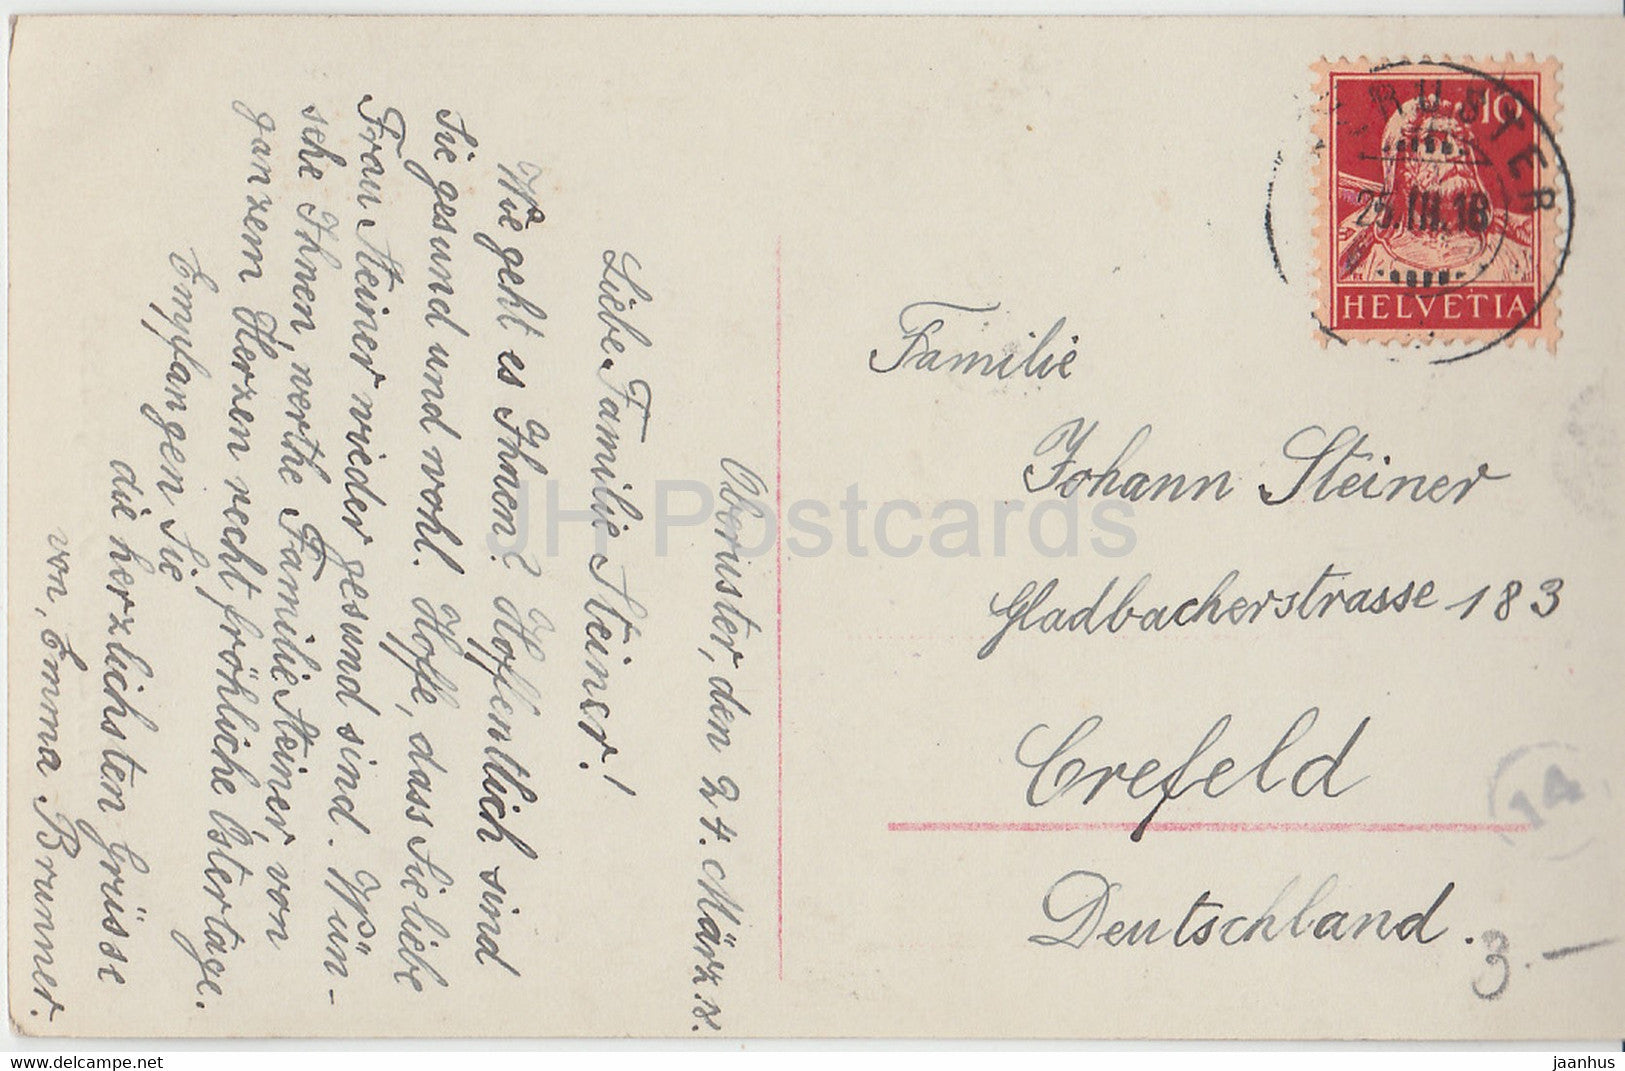 Oberuster, den 24. März 18.
Liebe Familie Steiner!
Wie geht es Ihnen? Hoffentlich sind
Sie gesund und wohl. Hoffe, dass Sie liebe
Frau Steiner wieder gesund sind. Wün-
sche Ihnen, werthe Familie Steiner, von
ganzem Herzen recht fröhliche Ostertage.
Empfangen Sie
die herzlichsten Grüsse
von, Emma Brunner.
10
HELVETIA
ERUSTER
25.III.18
Familie
Johann Steiner
Gladbacherstrasse 183
Crefeld
Deutschland.
14
3.–
JH Postcards
www.delcampe.net
jaanhus